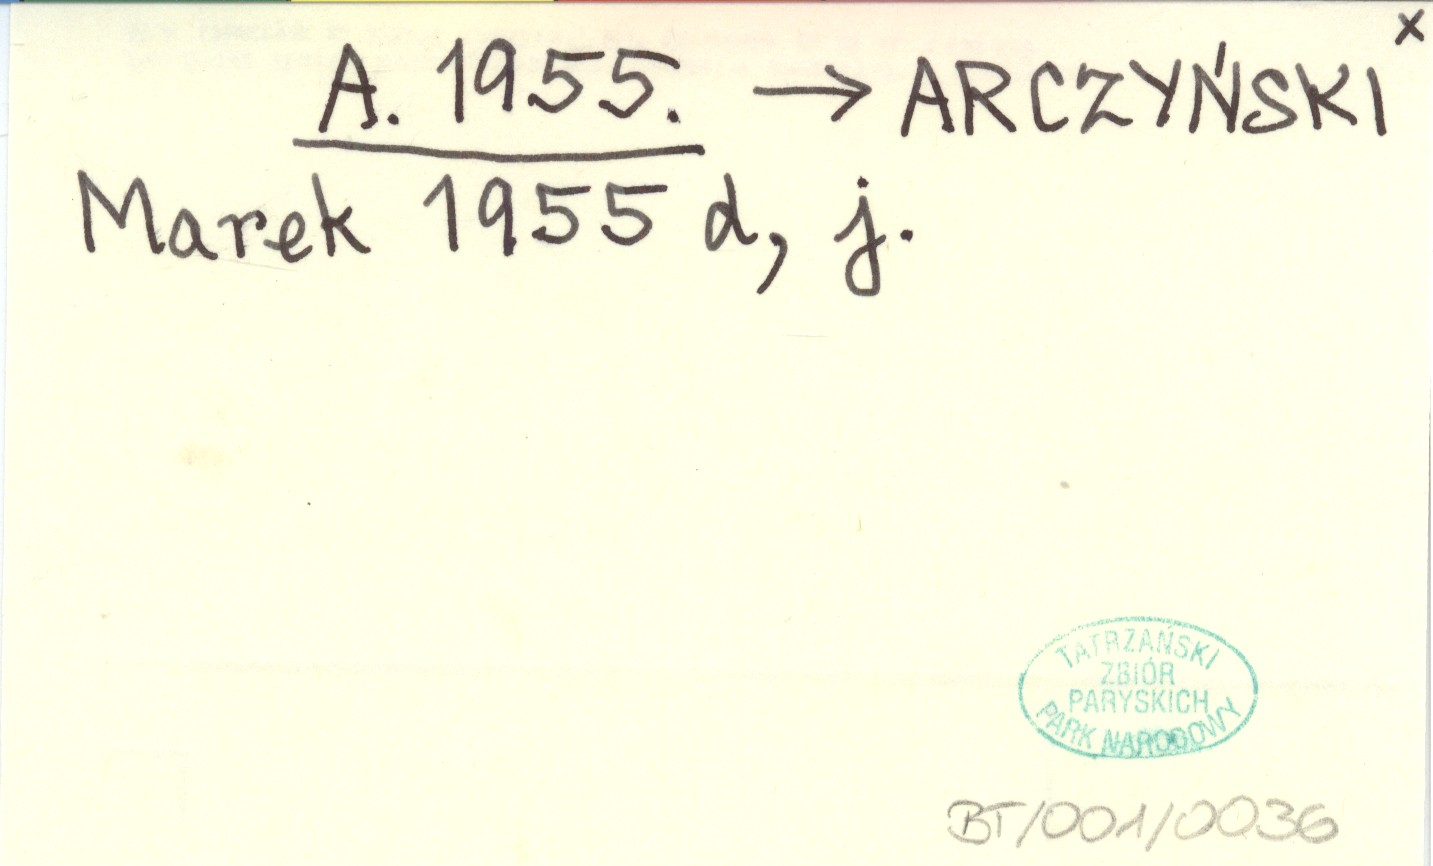 x
A. 1955. → ARCZYŃSKI
Marek 1955 d, j.
TATRZAŃSKI
ZBIÓR
PARYSKICH
PARK NARODOWY
BT/001/0036